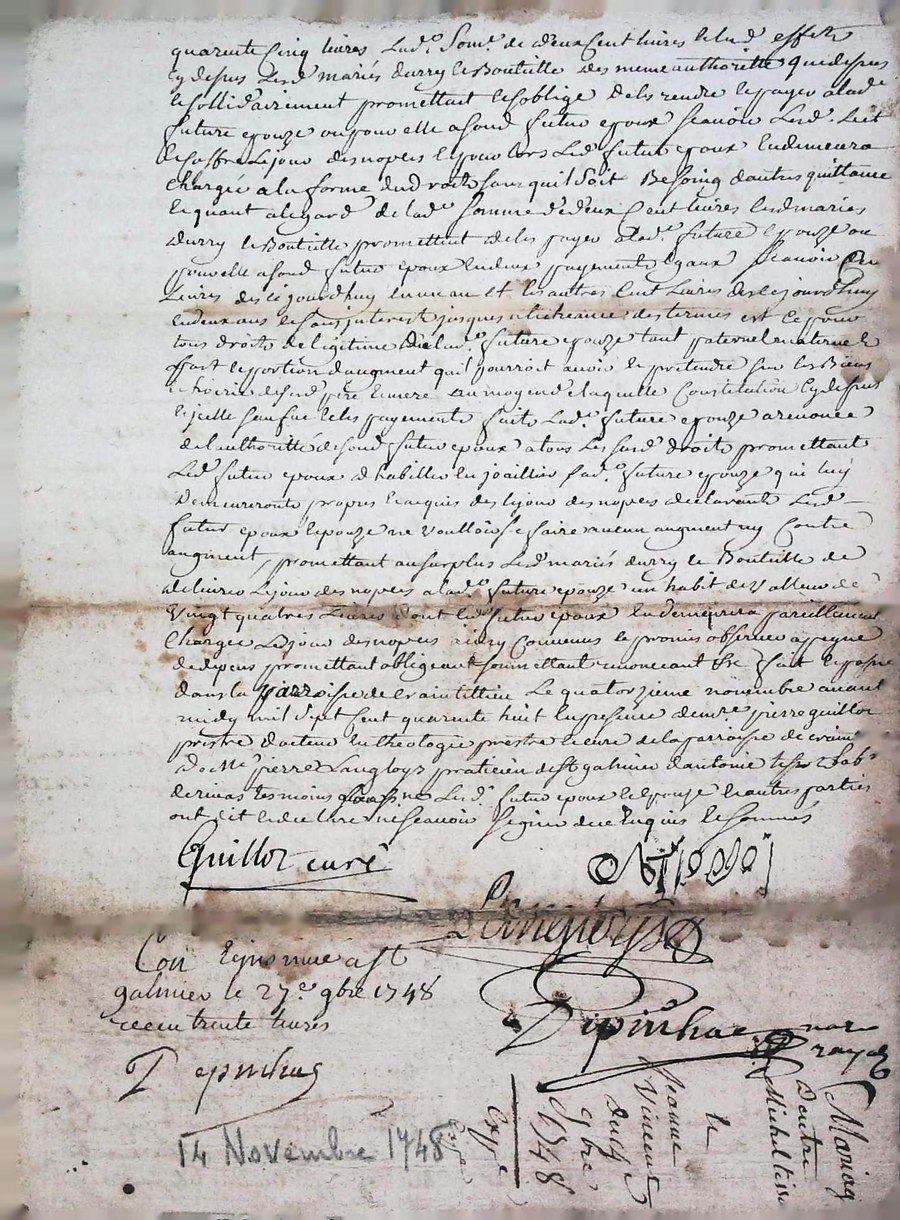 quarente Cinq livres Lad.e Som.e de deux Cent livres et lesd. effets
Cy depuis Lesd. mariés durry et Bouteille des meme authorité que depuis
et sollidairement promettent et soblige de les rendre et payer a lade
future epouze ou pour elle a sond. futur epoux scavoir Lesd. Lict
et coffre Le jour des nopces et pour lors Led. futur epoux en demeura
chargée a la forme du droit sans quil soit Besoing dautres quittance
et quant a legard de lad.e somme de deux Cent livres lesd mariés
durry et Bouteille promettent de les payer a lad.e future epouze ou
pour elle a sond futur epoux en deux payements Egaux scavoir Cen
Livres des ce jourdhuy en un an et les autres Cent Livres des ce jourdhuy
en deux ans et sans interest jusques a lecheance des termes et ce pour
tous droits de legitime de lad.e future epouze tant paternel maternel
part et portion daugment quil pourroit avoir et pretendre sur les Biens
et hoirie de sesd. pere et mere au moyen de laquelle Constitution Cy depus
et jcelle sensuë et les payements faits Lad.e future epouze a renoncé
de lauthorité de sond futur epoux a tous Les susd. droits promettant
Led. futur epoux dhabiller en joaillier sad.e future epouze qui luy
demeureront propres et acquis des le jour des nopces declarant Lesd
futur epoux et epouze ne voulloir se faire aucun augment ny Contre
augment, promettant au surplus Lesd. mariés durry et Bouteille de
delivrer Le jour des nopces a lad.e future epouze un habit de Valleur de
Vingt quatres Livres dont led. futur epoux en demeurera pareillement
Chargée Le jour des nopces ainsy Convenus et promis observer a peyne
de depens promettant obligeant soumettant renonceant &c fait et passé
dans la parroisse de Craintillieu Le quatorzieme novembre avant
midy mil sept Cent quarente huit en presence de m.re pierre guillot
prestre docteur en theologie prestre et curé de la parroisse de craint
& de M.e pierre Langloys praticien de St galmier & antoine
de rivas tesmoins Led. futur epoux et epouze et autres parties
ont dit et declaré ne scavoir signer de ce Enquis et sommés
Guillot curé
Langloys
Depinhac nore
royal
Con et jnsinué a St
galmier le 27.e 9bre 1748
receu trente livres
Depinhac
14 Novembre 1748
Mariag
Dentre
Michel
et
Jeanne
Vincent
Du 14
9bre
1748
Expé